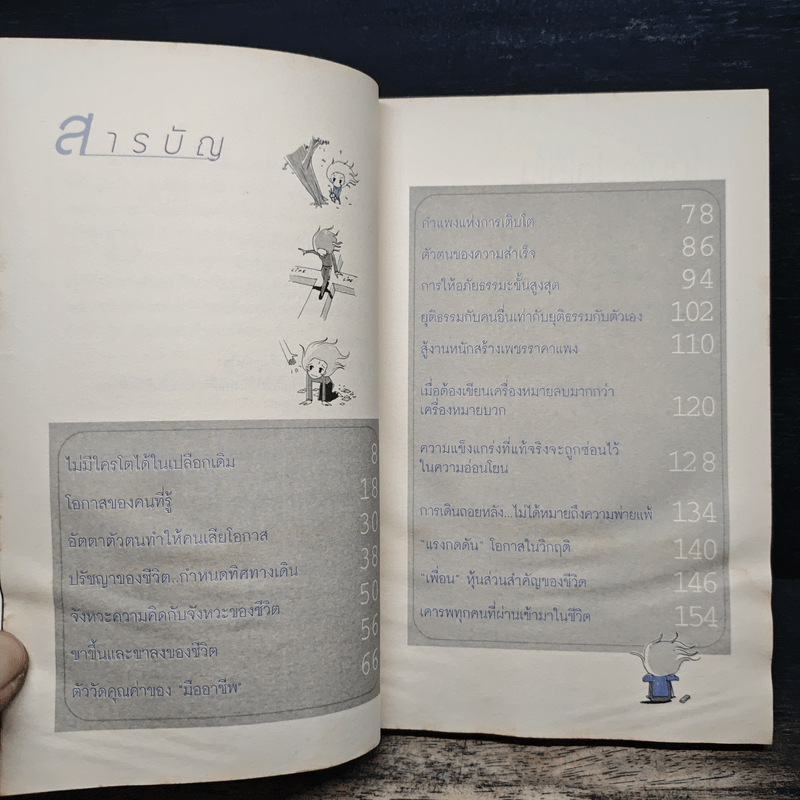 สารบัญ
ไม่มีใครโตได้ในเปลือกเดิม 8
โอกาสของคนที่รู้ 18
อัตตาตัวตนทำให้คนเสียโอกาส 30
ปรัชญาของชีวิต..กำหนดทิศทางเดิน 38
จังหวะความคิดกับจังหวะของชีวิต 50
ขาขึ้นและขาลงของชีวิต 56
ตัววัดคุณค่าของ "มืออาชีพ" 66
กำแพงแห่งการเติบโต 78
ตัวตนของความสำเร็จ 86
การให้อภัยธรรมะขั้นสูงสุด 94
ยุติธรรมกับคนอื่นเท่ากับยุติธรรมกับตัวเอง 102
สู้งานหนักสร้างเพชรราคาแพง 110
เมื่อต้องเขียนเครื่องหมายลบมากกว่า
เครื่องหมายบวก 120
ความแข็งแกร่งที่แท้จริงจะถูกซ่อนไว้
ในความอ่อนโยน 128
การเดินถอยหลัง...ไม่ได้หมายถึงความพ่ายแพ้ 134
"แรงกดดัน" โอกาสในวิกฤติ 140
"เพื่อน" หุ้นส่วนสำคัญของชีวิต 146
เคารพทุกคนที่ผ่านเข้ามาในชีวิต 154